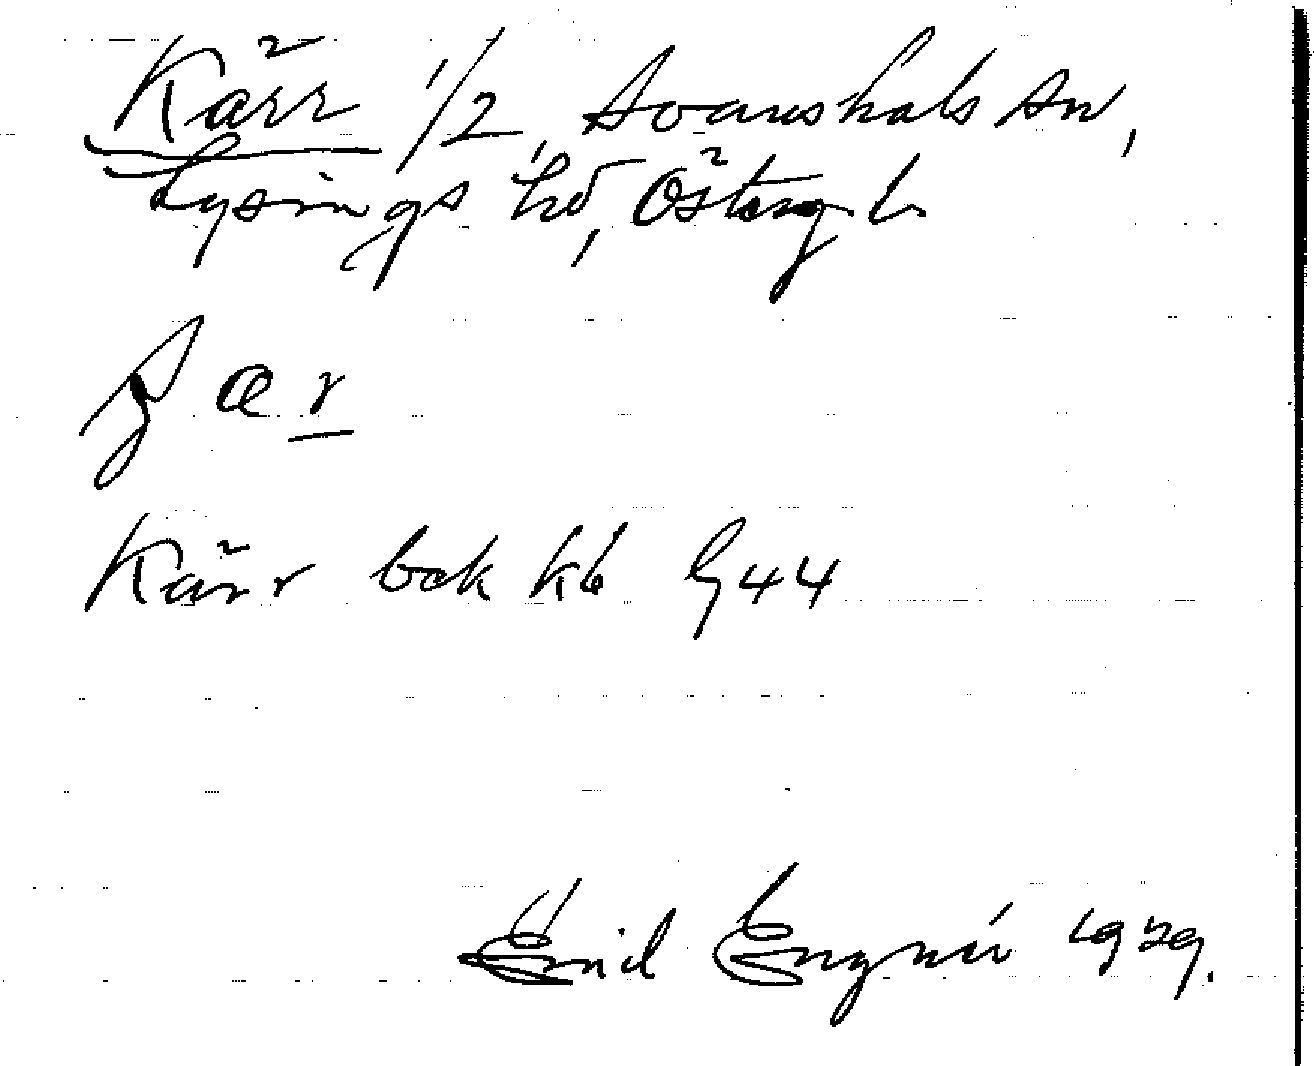 Kärr 1/2, Svanshals sn,
Lysings hd, Östergl.
Kärr bok kb 1944
Enid Engnér 1929.